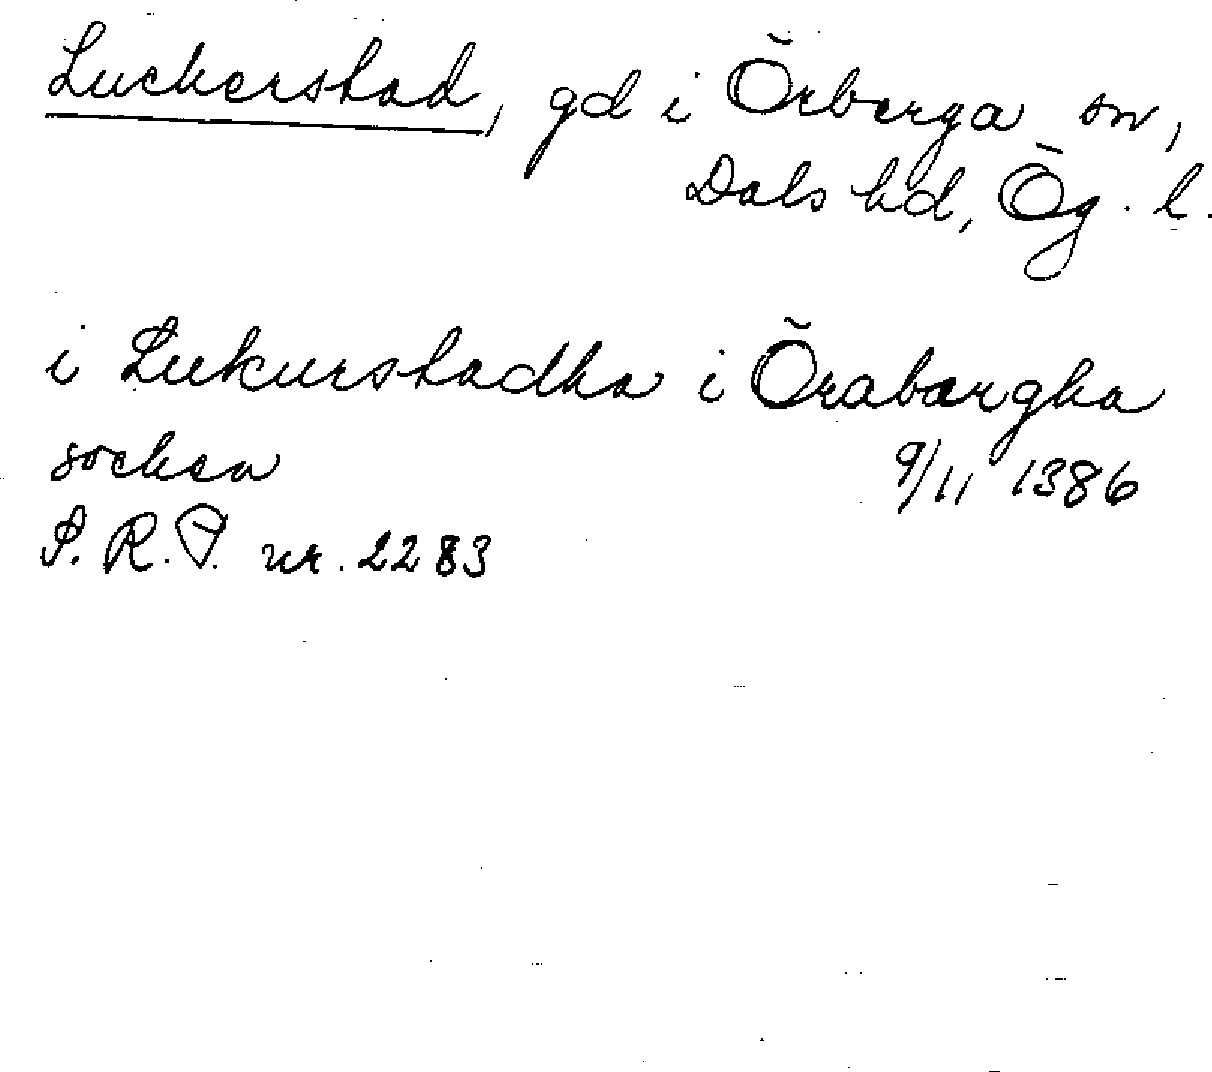 Luckerstad, gd i Örberga sn,
Dals hd, Ög. l.
i Lukurstadha i Örabærgha
socken 9/11 1386
S. R. P. nr. 2283